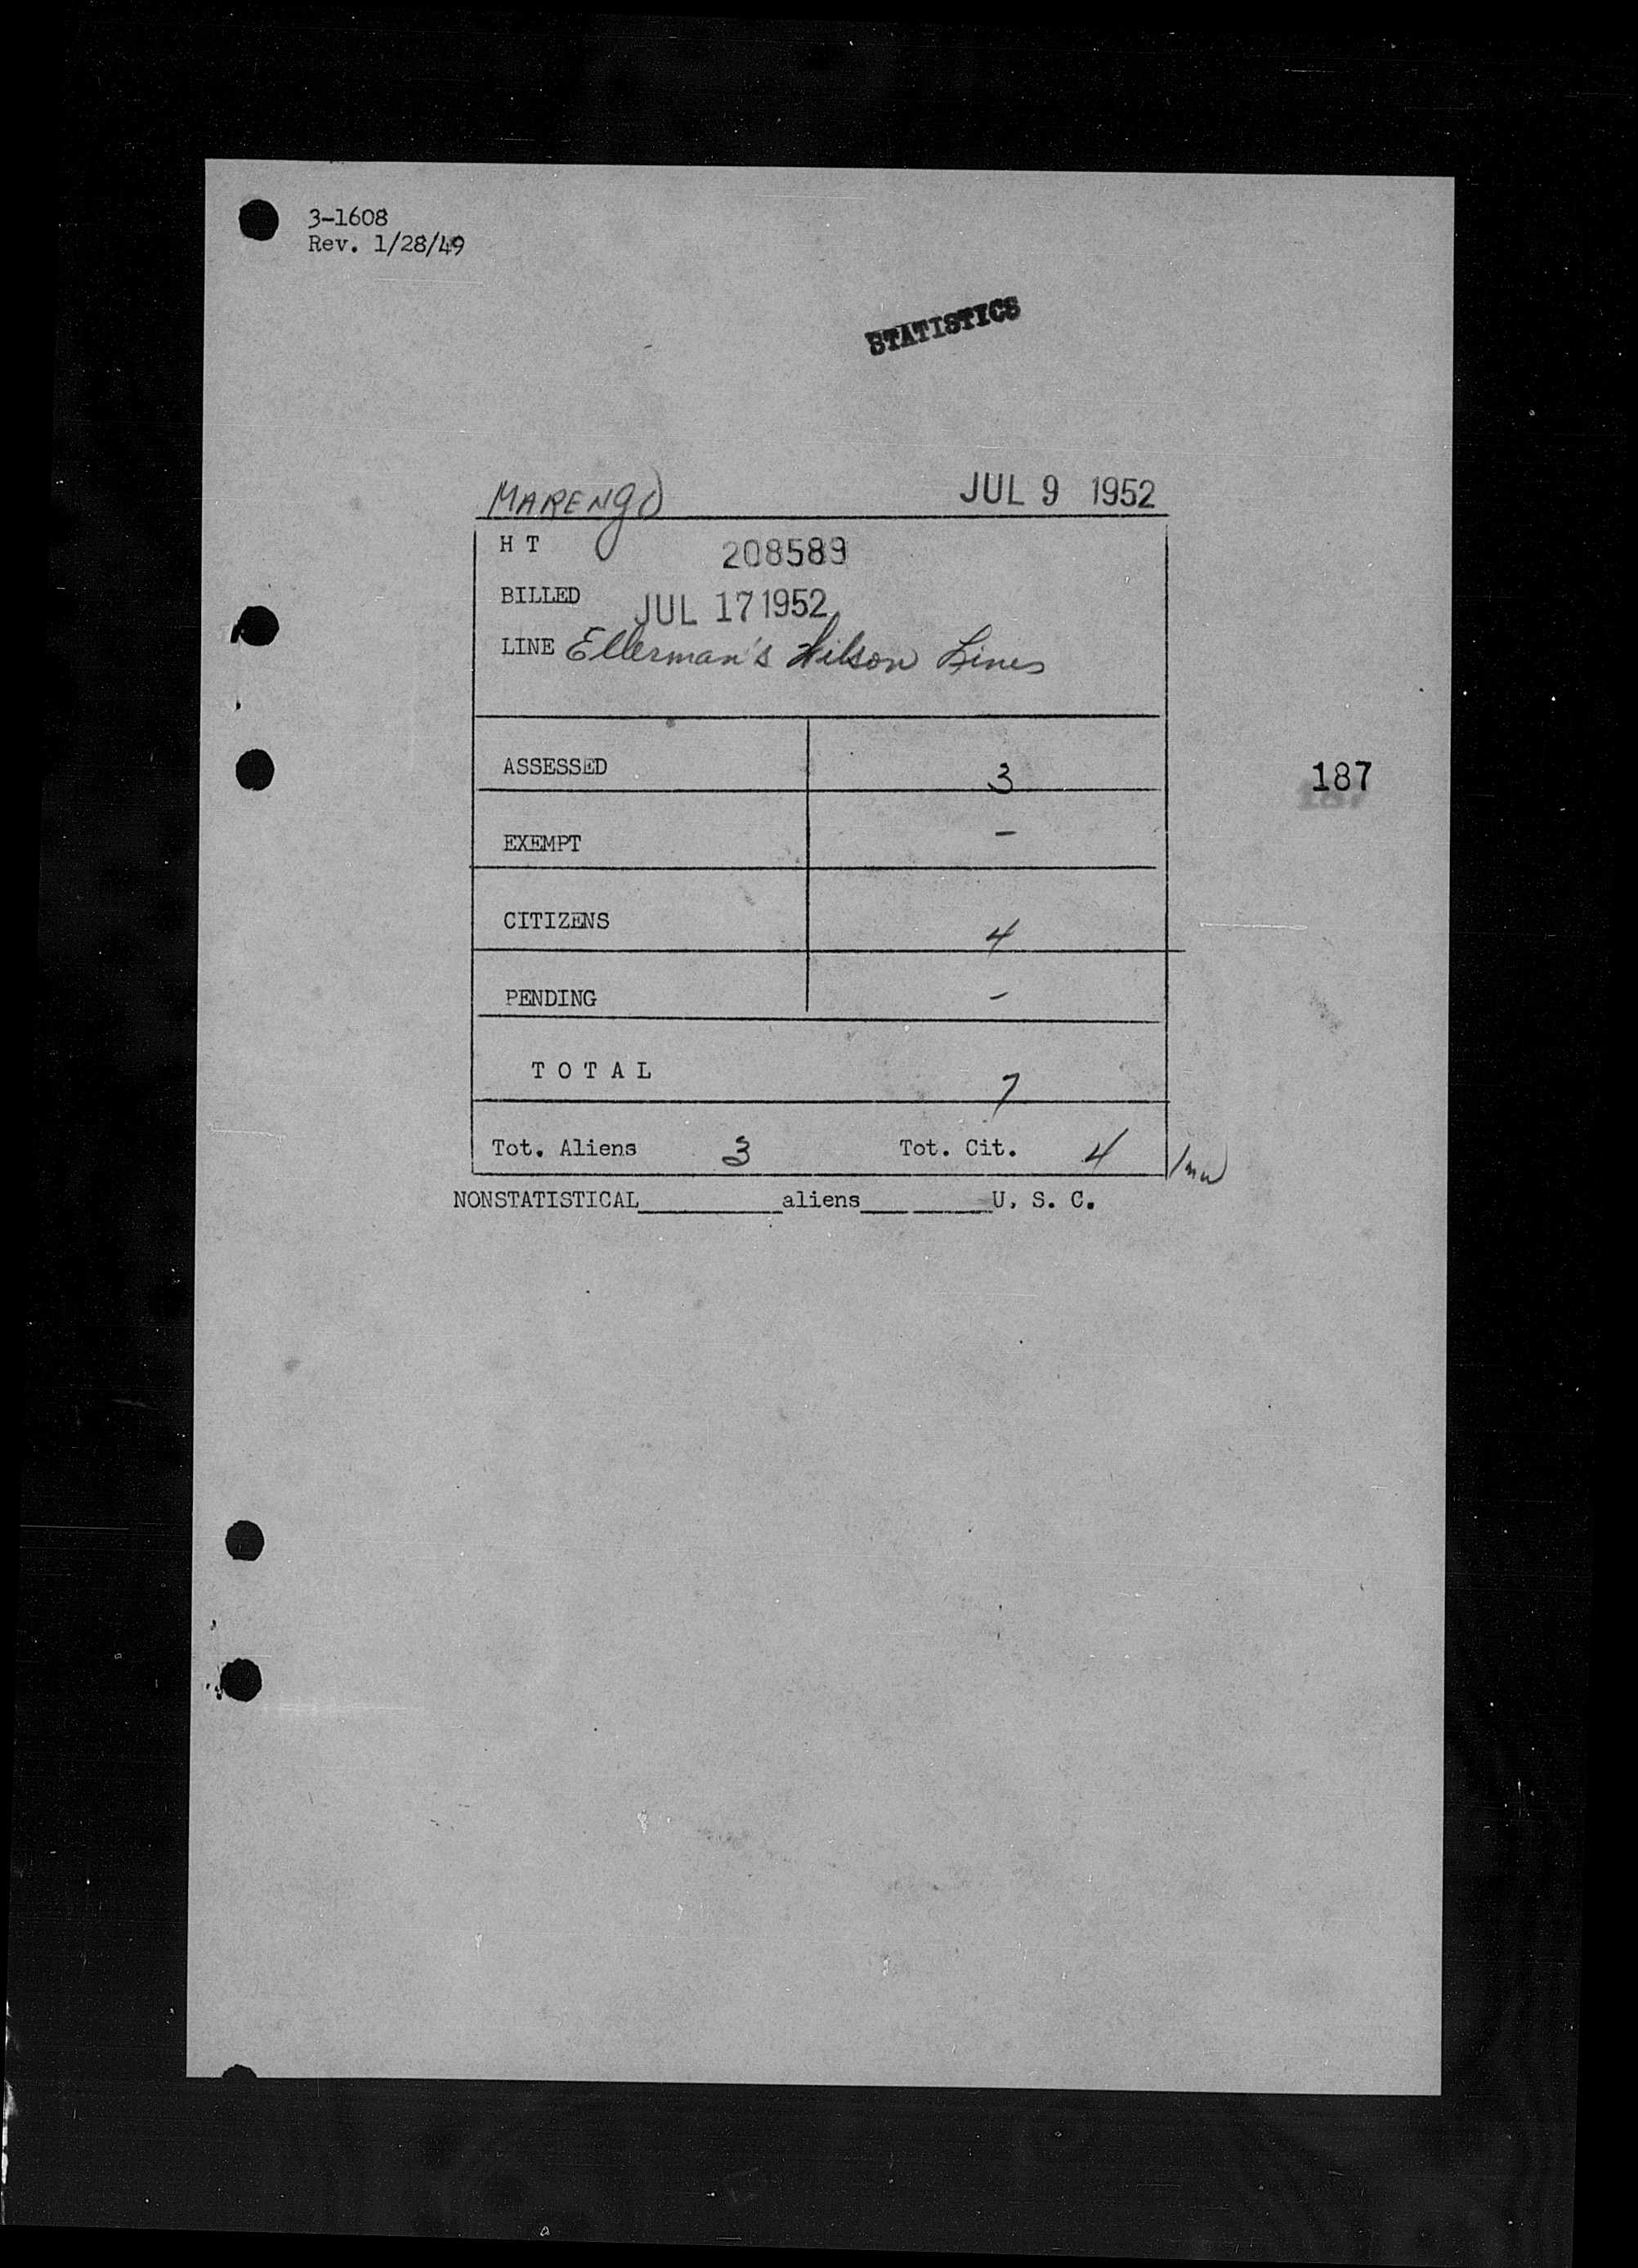 3-1608
Rev. 1/28/49
STATISTICS
MARENGO JUL 9 1952
H T 208589
BILLED JUL 17 1952
LINE Ellerman's Wilson Lines
ASSESSED 3
187
EXEMPT -
CITIZENS 4
PENDING -
T O T A L 7
Tot. Aliens 3 Tot. Cit. 4
NONSTATISTICAL__________aliens____ ______U. S. C.